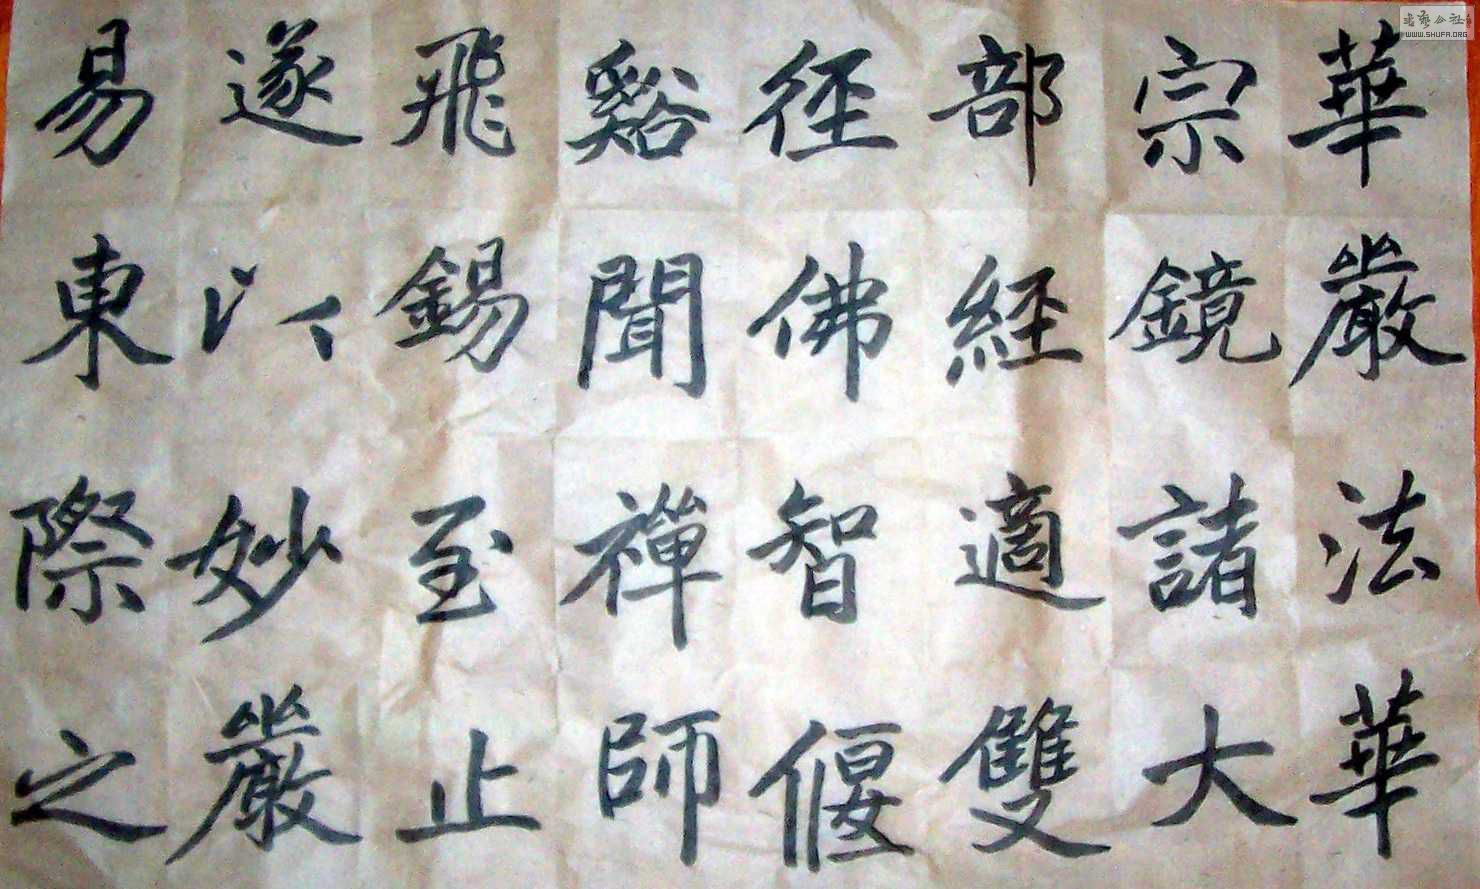 華嚴法華
宗鏡諸大
部經適雙
徑佛智偃
谿聞禪師
飛錫至止
遂以妙嚴
易東際之
書藝公社
WWW.SHUFA.ORG